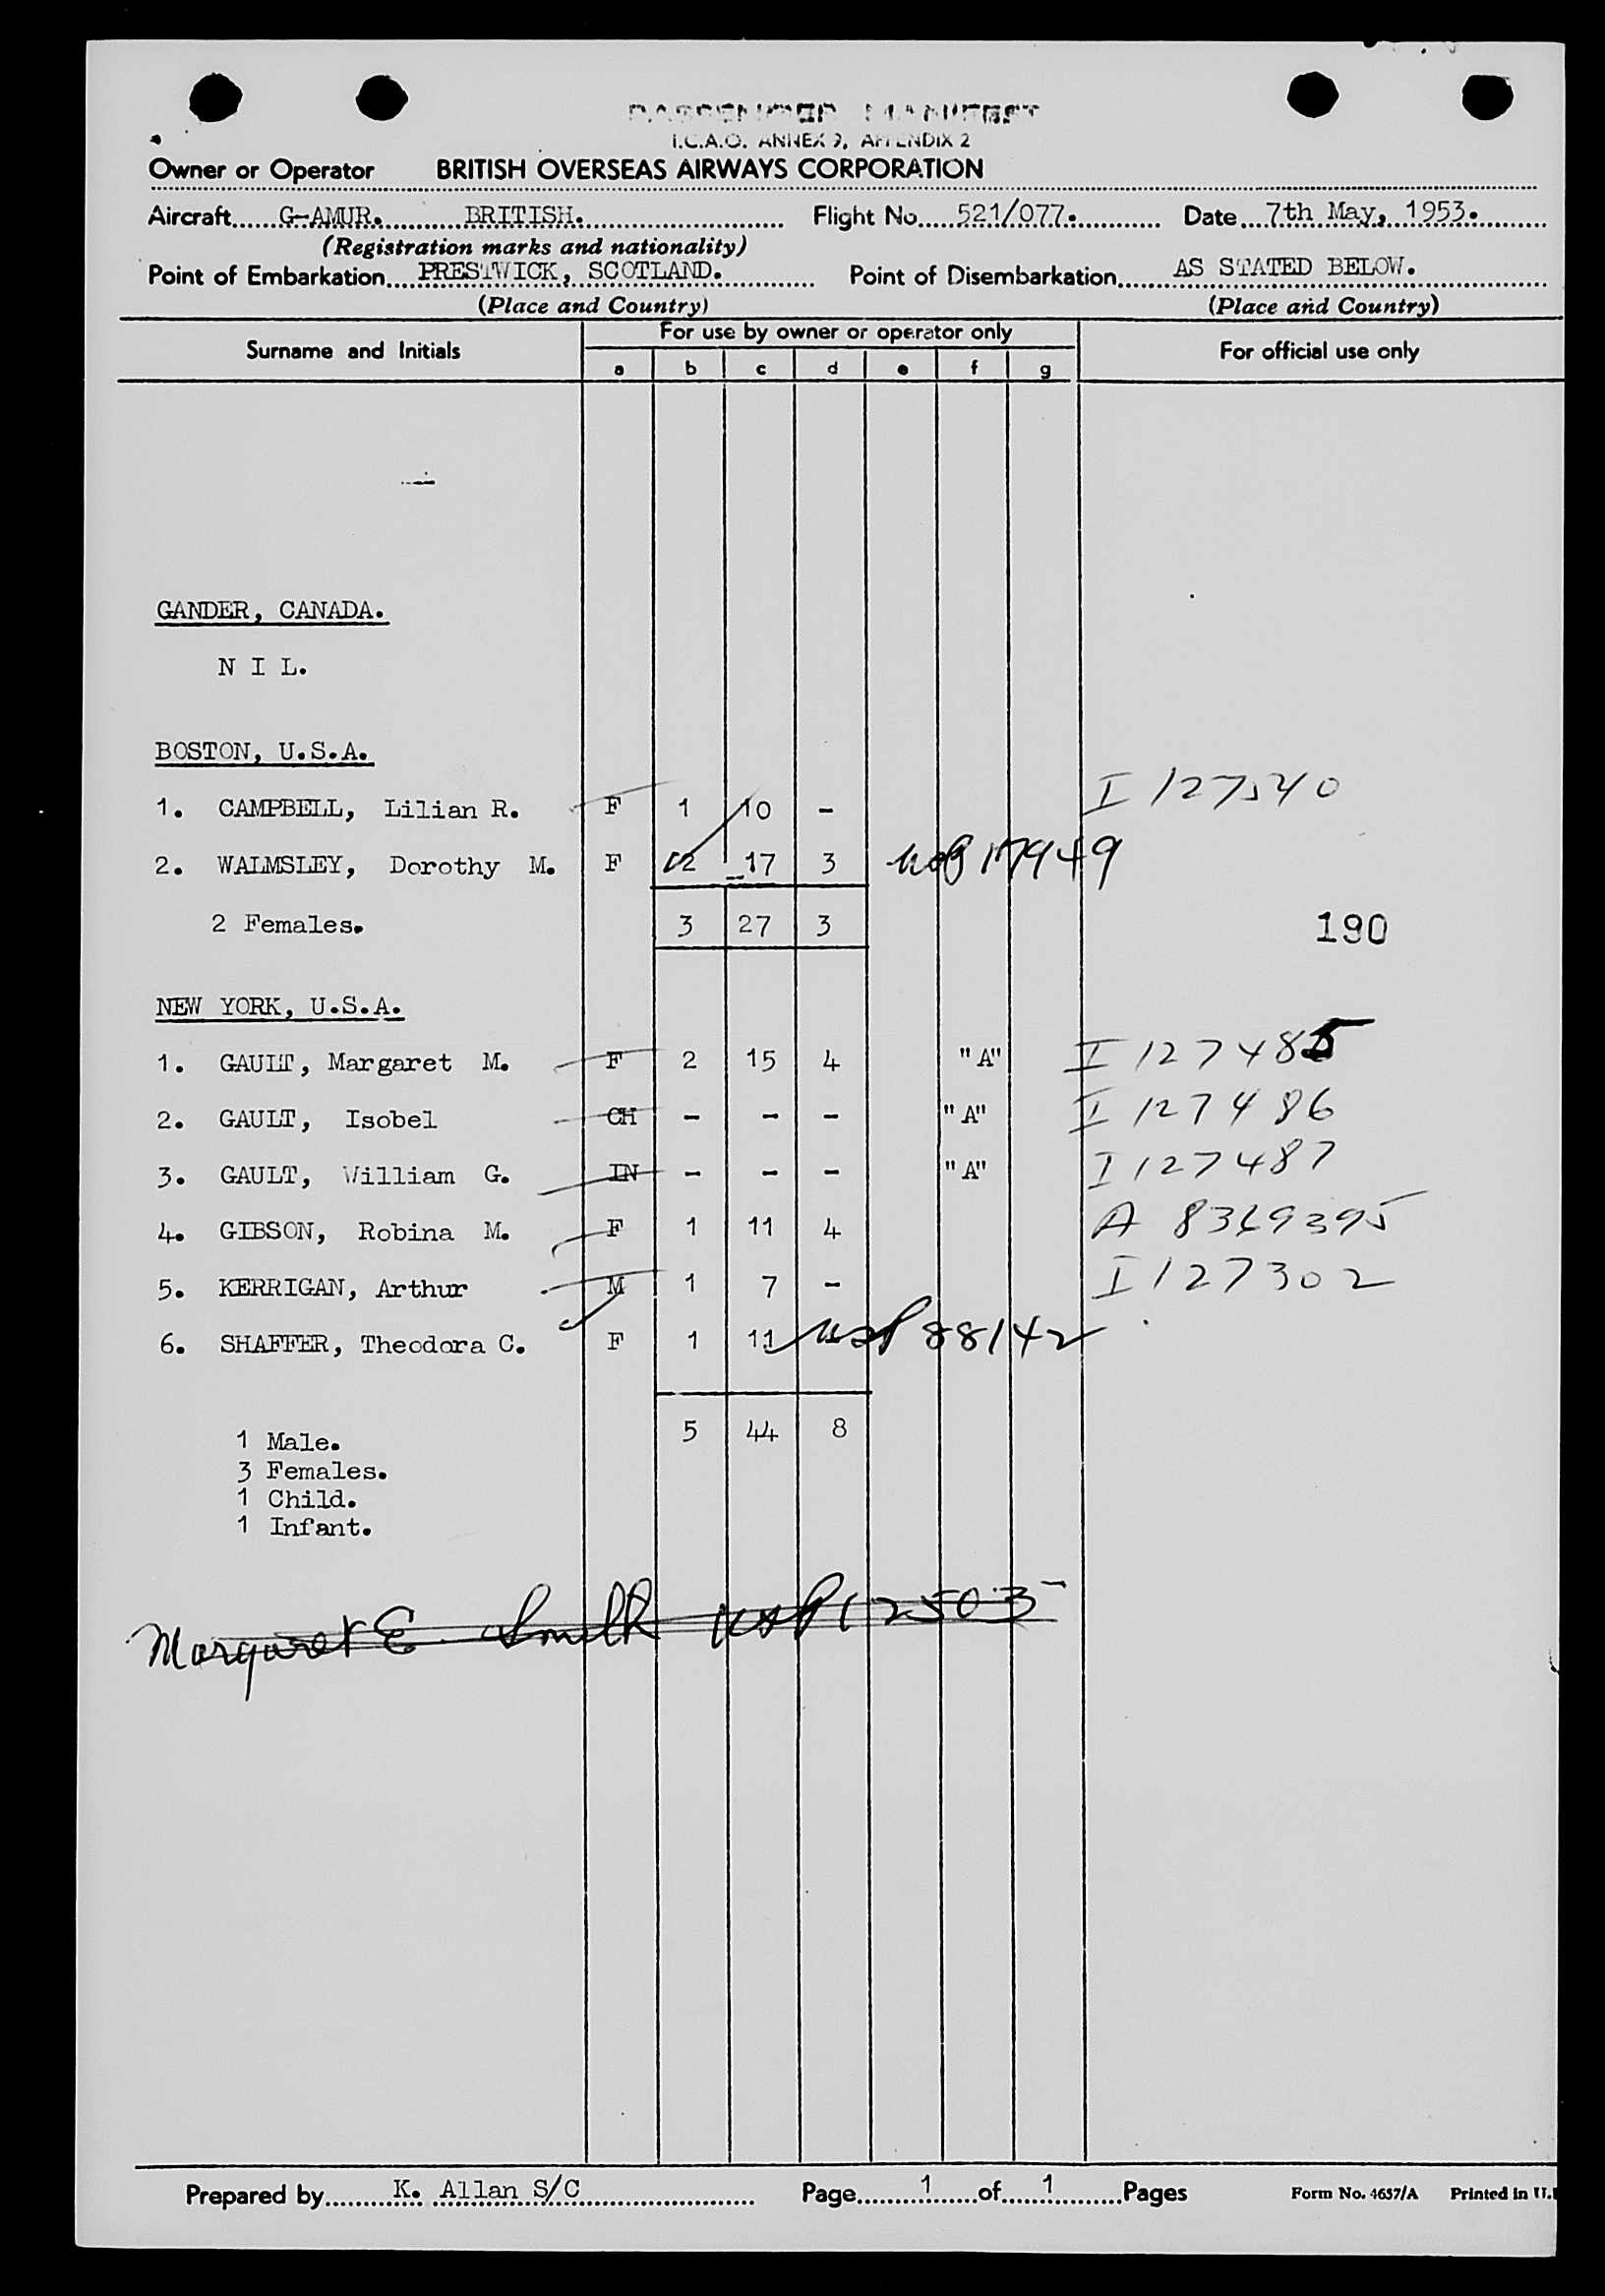 PASSENGER MANIFEST
I.C.A.O. ANNEX 9, APPENDIX 2
Owner or Operator BRITISH OVERSEAS AIRWAYS CORPORATION
Aircraft G-AMUR. BRITISH. Flight No 521/077. Date 7th May, 1953.
(Registration marks and nationality)
Point of Embarkation PRESTWICK, SCOTLAND. Point of Disembarkation AS STATED BELOW.
(Place and Country) (Place and Country)
Surname and Initials For use by owner or operator only For official use only
a b c d e f g
GANDER, CANADA.
N I L.
BOSTON, U.S.A.
1. CAMPBELL, Lilian R. F 1 10 - I
2. WALMSLEY, Dorothy M. F 2 17 3
2 Females. 3 27 3 190
NEW YORK, U.S.A.
1. GAULT, Margaret M. F 2 15 4 "A" I 127485
2. GAULT, Isobel CH - - - "A" I 127486
3. GAULT, William G. IN - - - "A" I 127487
4. GIBSON, Robina M. F 1 11 4 A 8369395
5. KERRIGAN, Arthur M 1 7 - I 127302
6. SHAFFER, Theodora C. F 1 11 usp 88142
5 44 8
1 Male.
3 Females.
1 Child.
1 Infant.
Margaret E. Smith usp 12503
Prepared by K. Allan S/C Page 1 of 1 Pages Form No. 4657/A Printed in U.